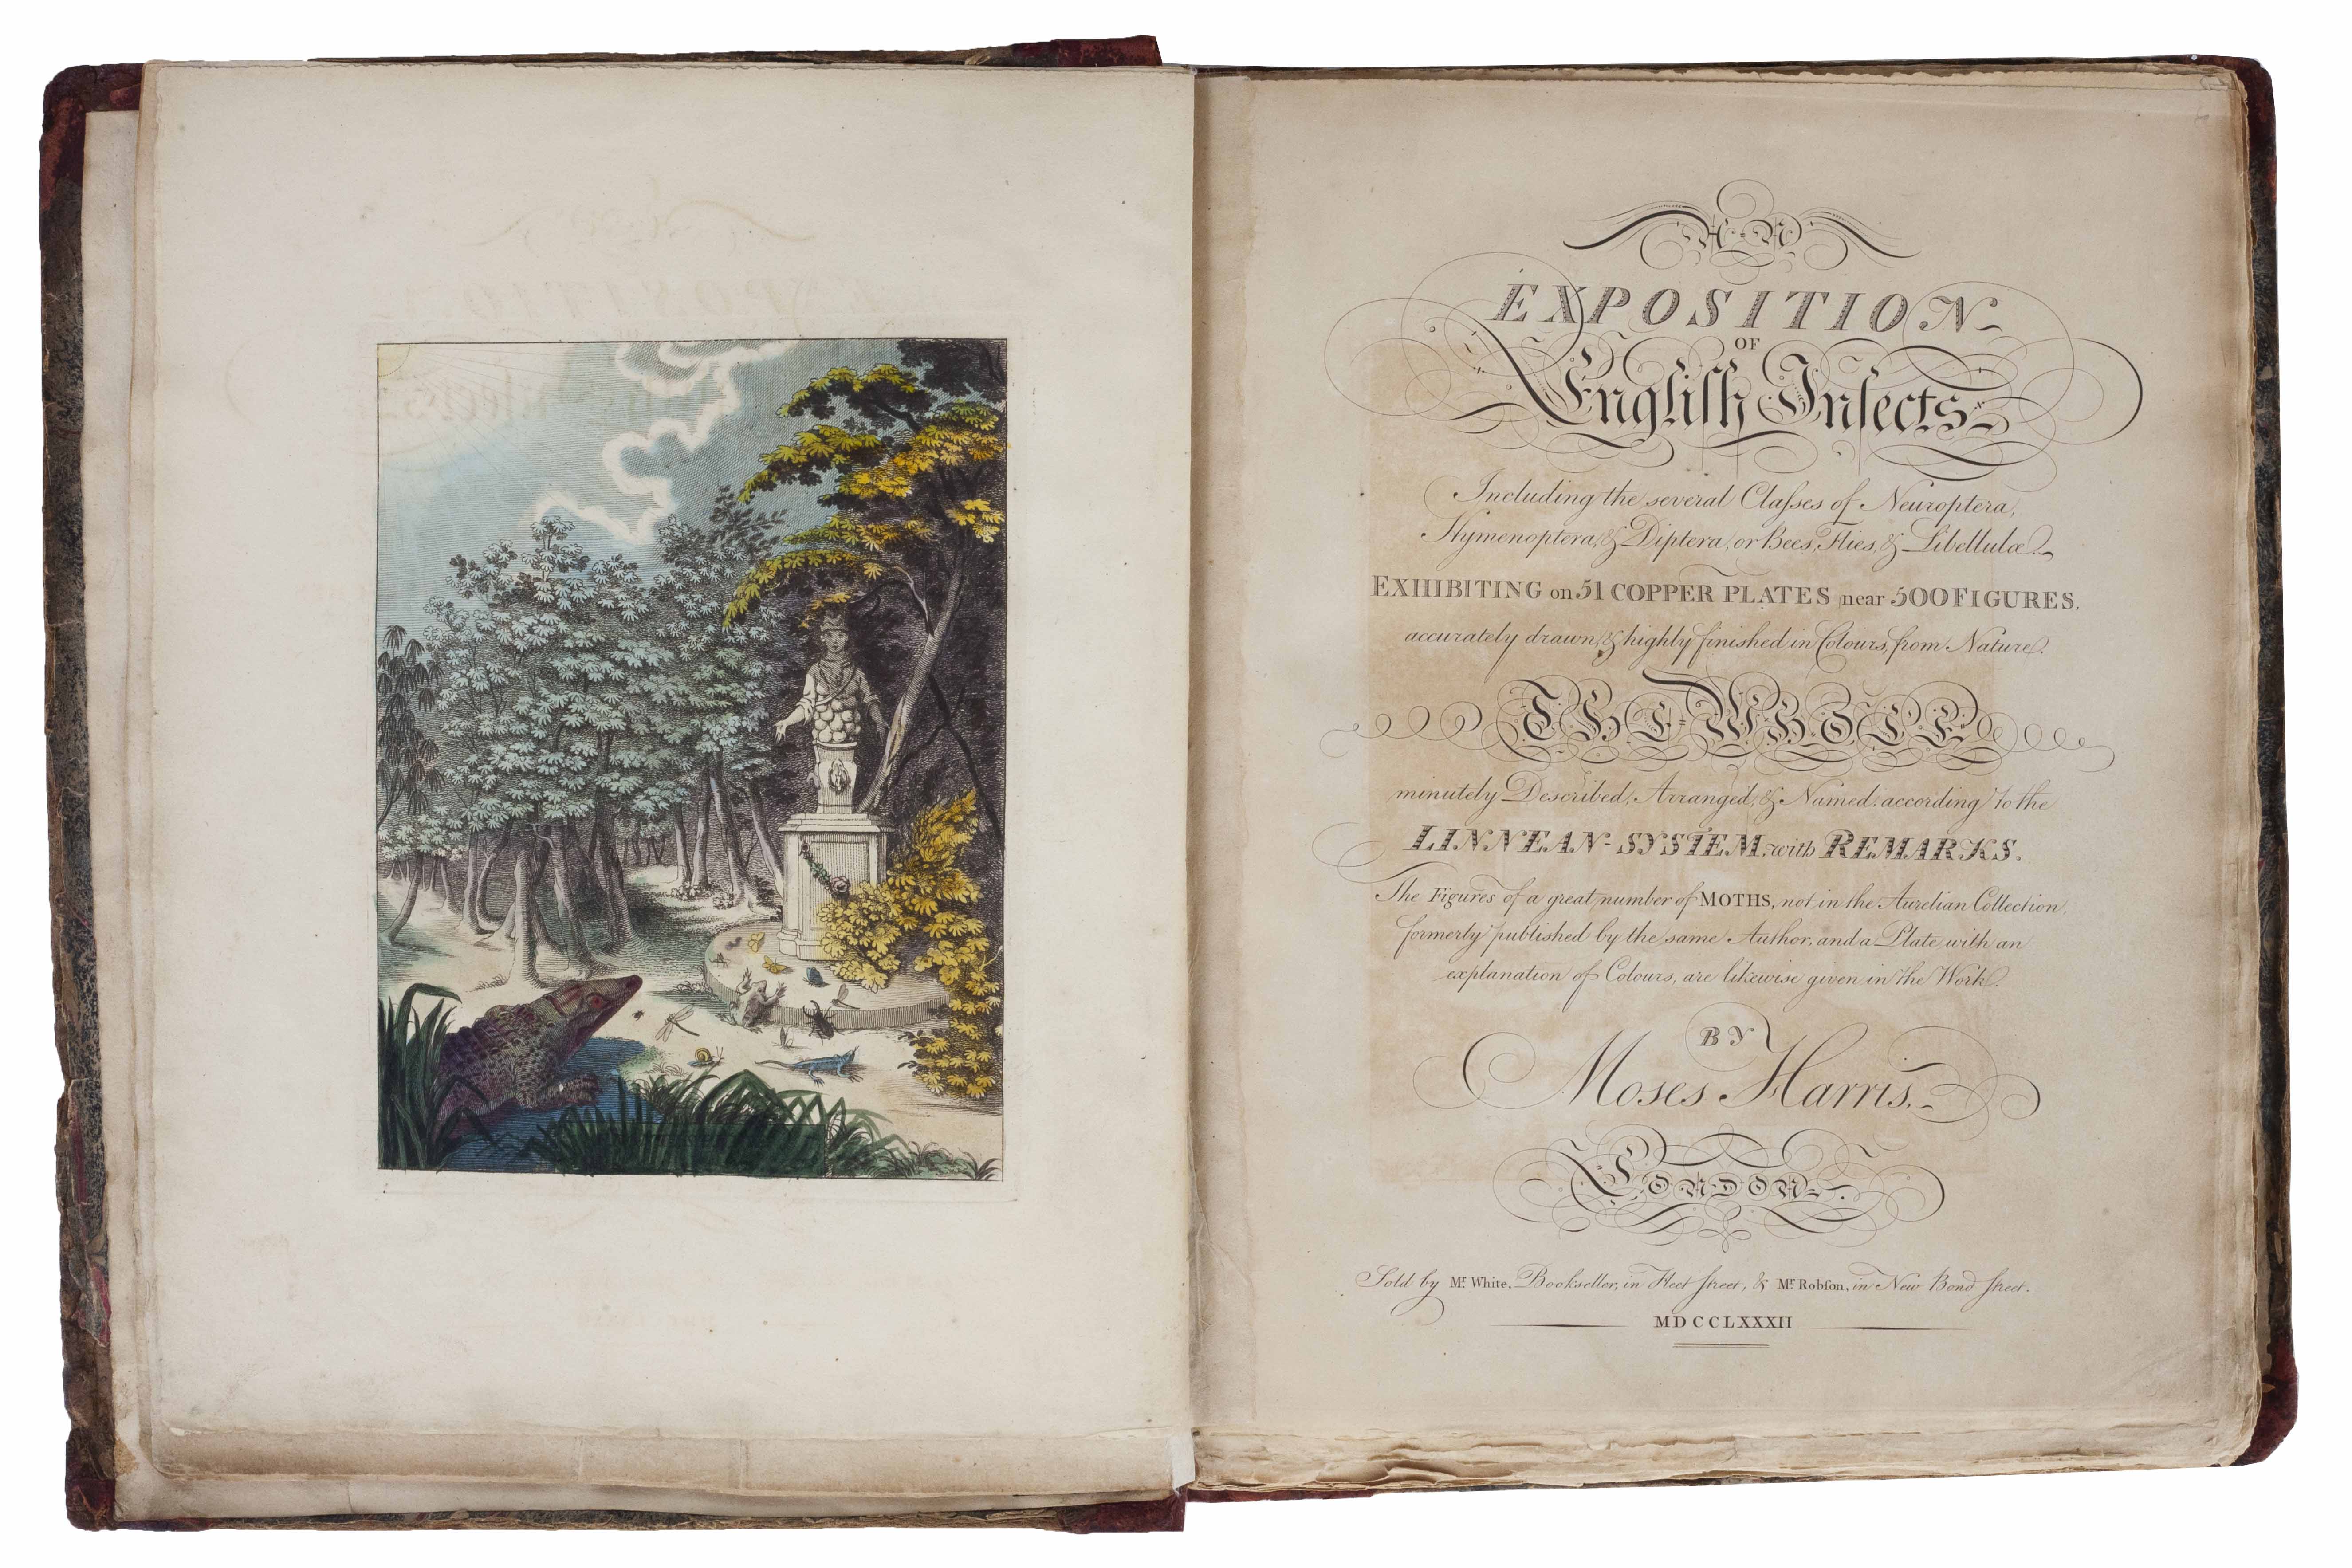 AN
EXPOSITION
OF
Engliſh Inſects
Including the several Claſses of Neuroptera,
Hymenoptera, & Diptera, or Bees, Flies, & Libellulæ.
EXHIBITING on 51 COPPER PLATES near 500 FIGURES,
accurately drawn, & highly finished in Colours, from Nature.
THE WHOLE
minutely Described, Arranged, & Named, according to the
LINNEAN-SYSTEM, with REMARKS.
The Figures of a great number of MOTHS, not in the Aurelian Collection,
formerly published by the same Author, and a Plate with an
explanation of Colours, are likewise given in the Work.
BY
Moses Harris.
LONDON.
Sold by Mr. White, Bookseller, in Fleet ſtreet, & Mr. Robſon, in New Bond ſtreet.
MDCCLXXXII